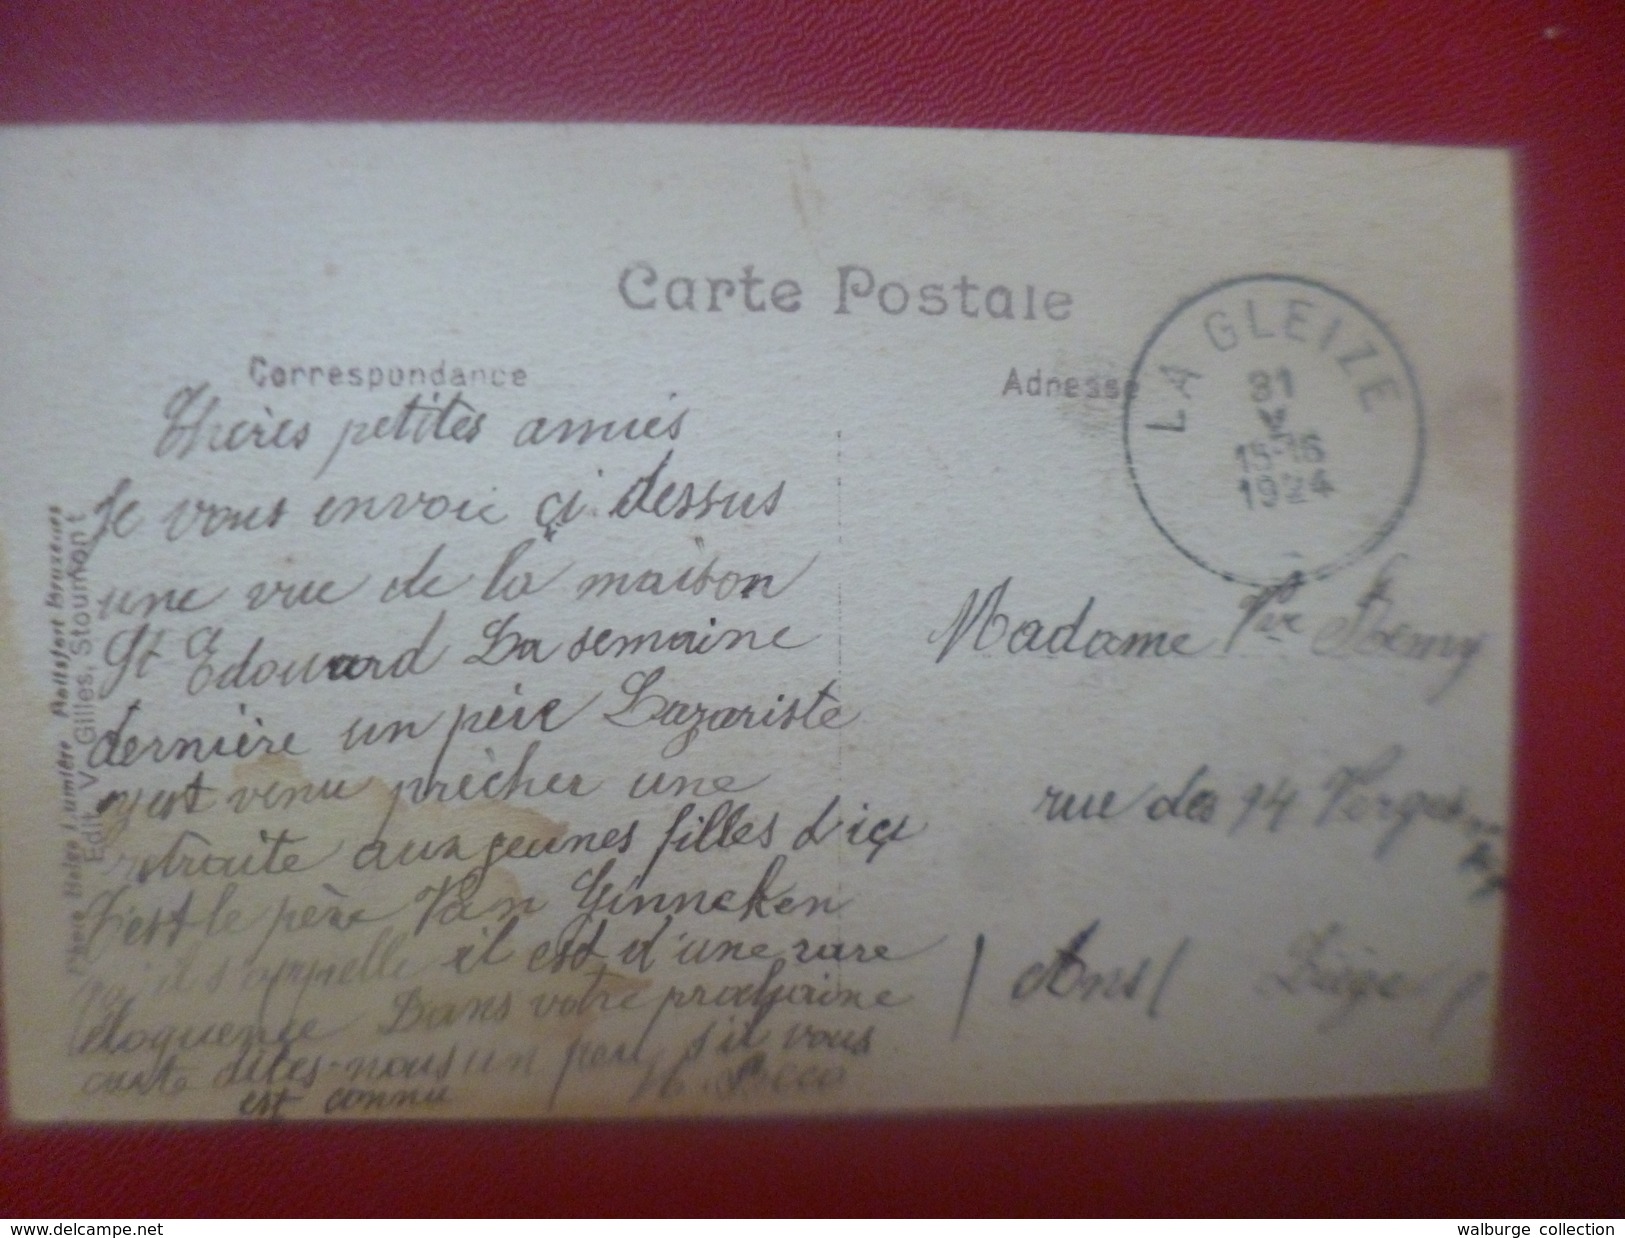 Carte Postale
Correspondance
Adresse
LA GLEIZE
31
V
15-16
1924
Chères petites amies
Je vous envoie çi dessus
une vue de la maison
St Edouard La semaine
dernière un père Lazariste
est venu prêcher une
retraite aux jeunes filles d'içi
C'est le père Van Ginneken
qu'il s'appelle il est d'une rare
éloquence Dans votre prochaine
carte dites-nous un peu s'il vous
est connu
Madame Vve Remy
rue des 14 Verges
(Ans) Liège)
Phototypie Belge Lumière
Edit. V. Gilles, Stoumont
walburge collection
delcampe.net